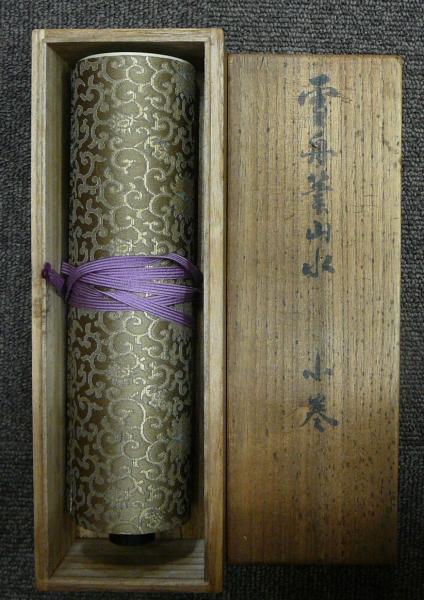 雪舟筆山水 小巻